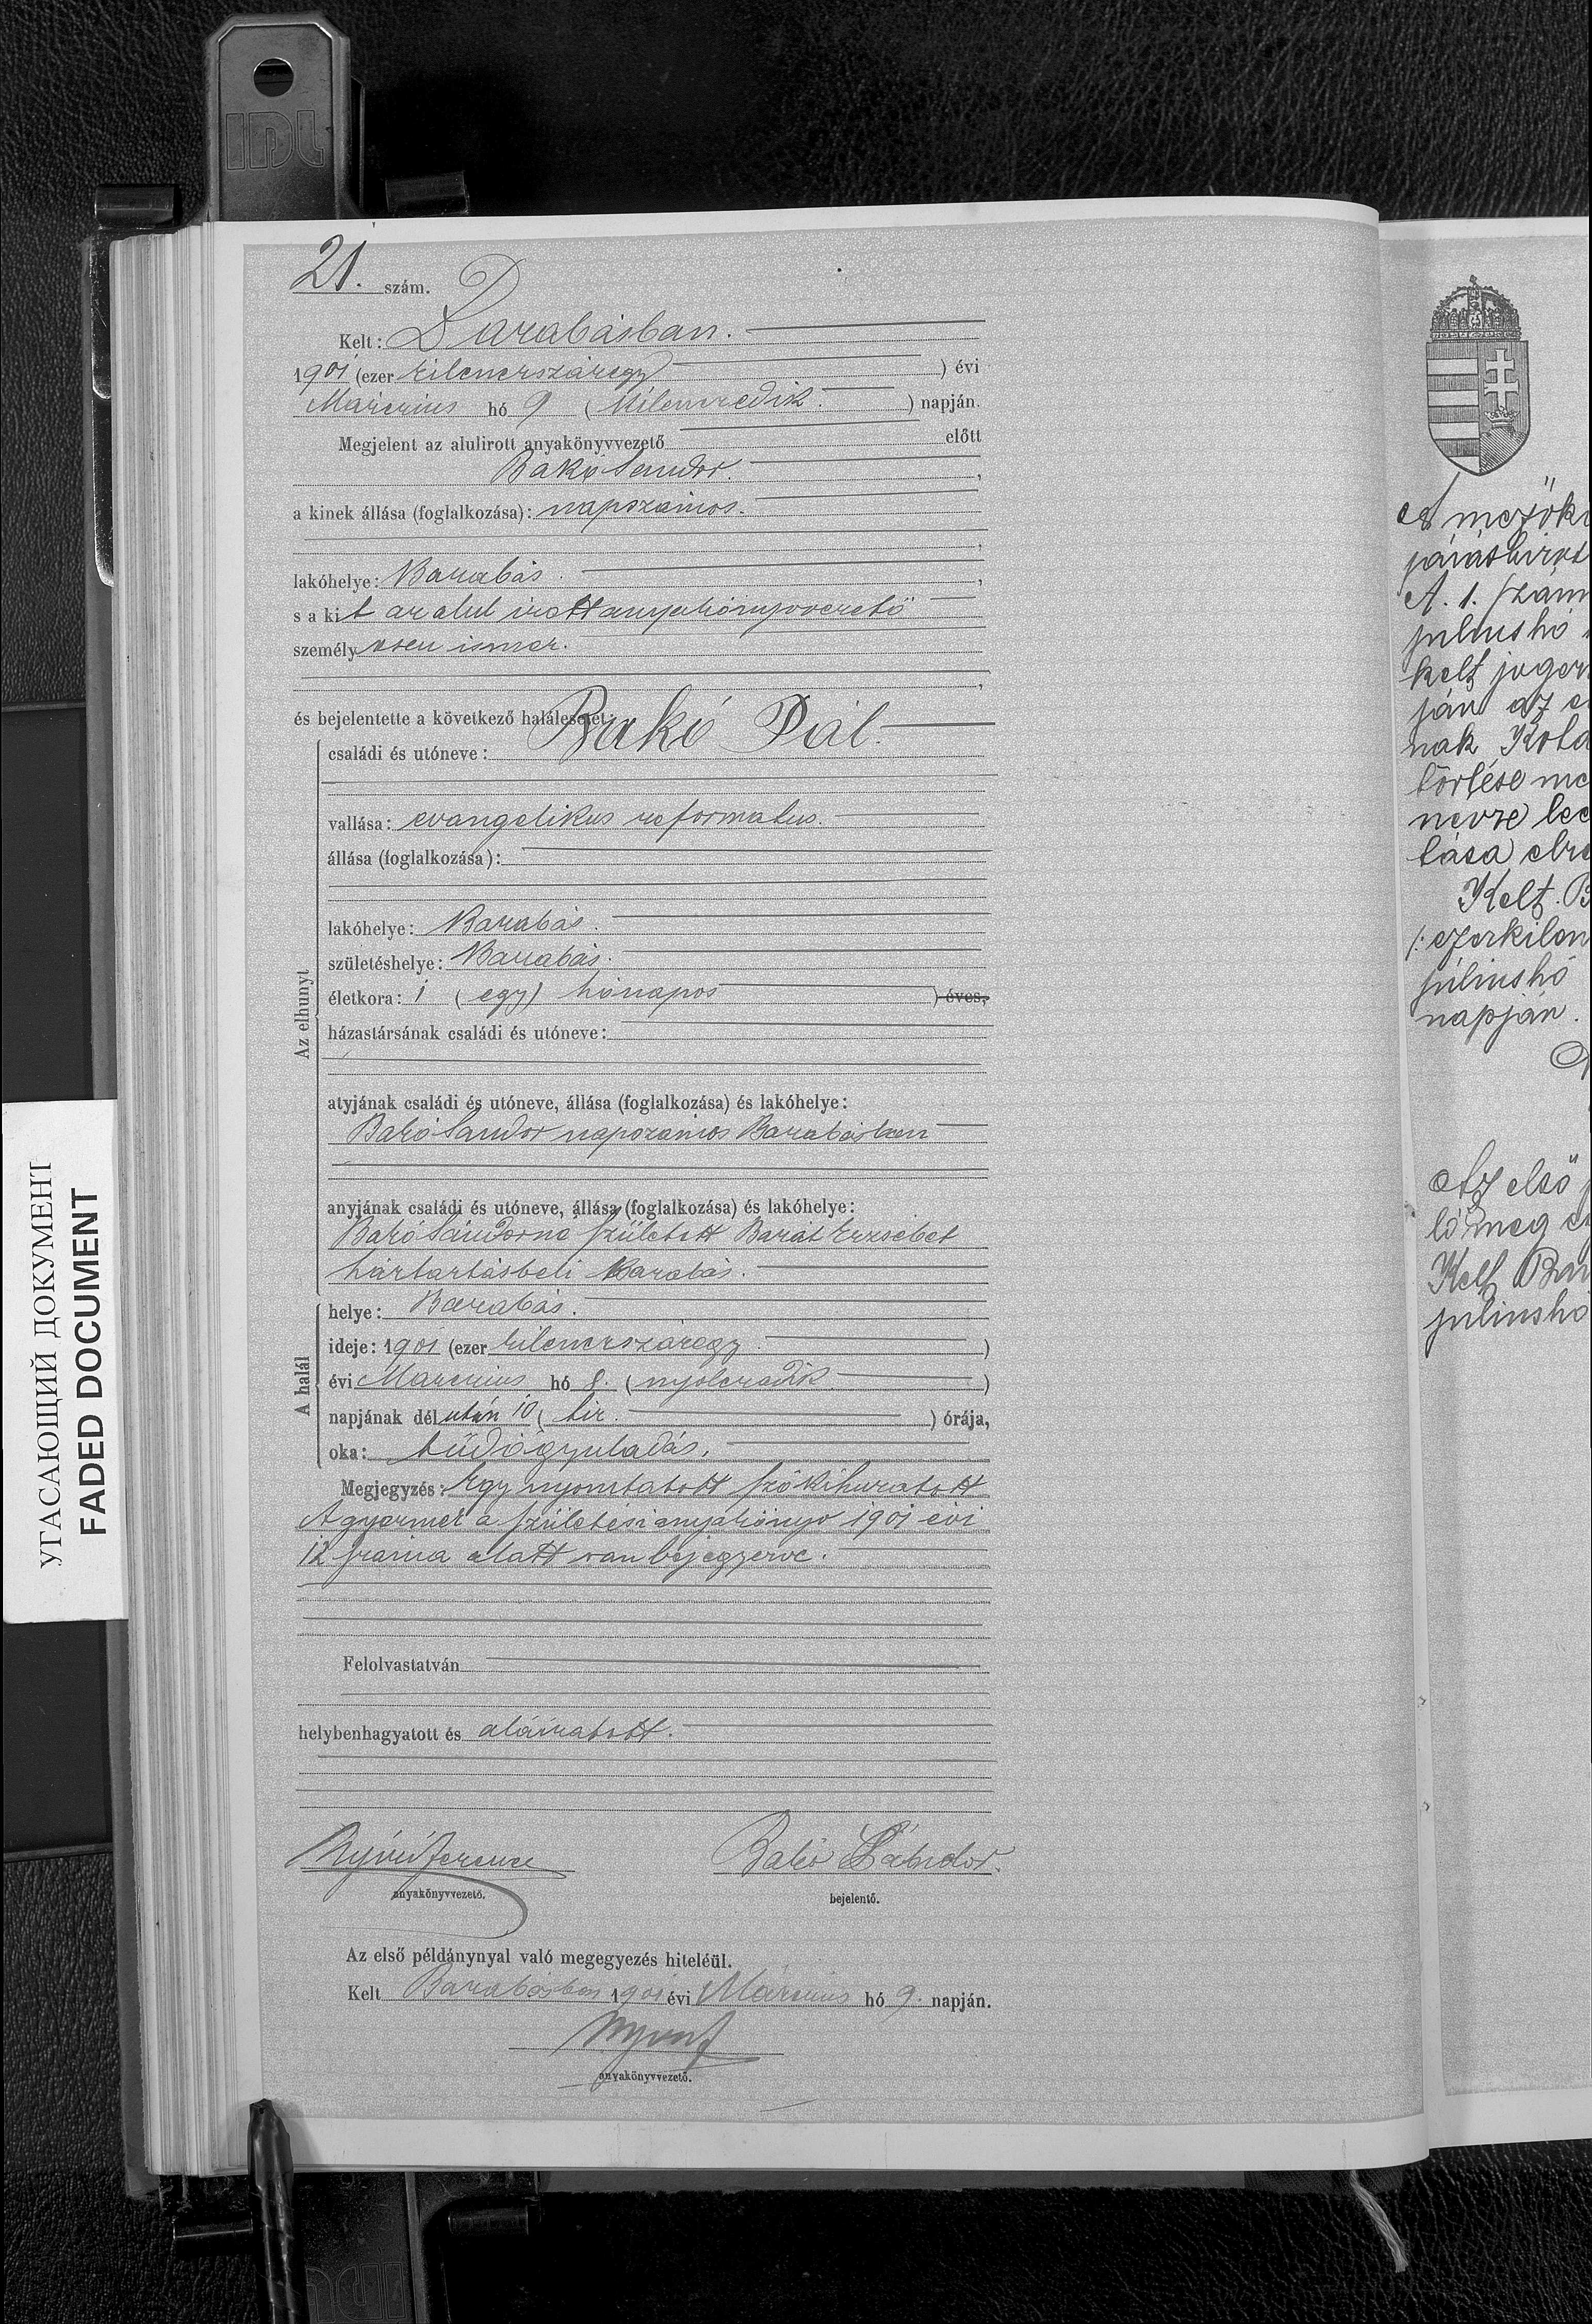 IDL
21. szám.
Kelt: Barabásban.
1901 (ezer kilenczszázegy) évi
Márczius hó 9 (kilenczedik.) napján.
Megjelent az alulirott anyakönyvvezető előtt
Bakó Sándor.,
a kinek állása (foglalkozása): napszámos.
,
lakóhelye: Barabás.,
s a kit az alul irott anyakönyvvezető
személyesen ismer.
,
és bejelentette a következő halálesetet:
Az elhunyt
családi és utóneve: Bakó Pál.
vallása: evangelikus reformatus.
állása (foglalkozása):
lakóhelye: Barabás.
születéshelye: Barabás.
életkora: 1 (egy) hónapos ) éves,
házastársának családi és utóneve:
atyjának családi és utóneve, állása (foglalkozása) és lakóhelye:
Bakó Sándor napszámos Barabásban
anyjának családi és utóneve, állása (foglalkozása) és lakóhelye:
Bakó Sándorné született Barát Erzsébet
háztartásbeli Barabás.
A halál
helye: Barabás.
ideje: 1901 (ezer kilenczszázegy.)
évi Márczius hó 8. (nyolczadik.)
napjának délután 10 (tiz.) órája,
oka: tüdőgyuladás.
Megjegyzés: Egy nyomtatott szó kihuzatott
A gyermek a születési anyakönyv 1901 évi
12 száma alatt van bejegyezve.
Felolvastatván
helybenhagyatott és aláiratott.
Ferencz Bakó Sándor.
anyakönyvvezető. bejelentő.
Az első példánynyal való megegyezés hiteléül.
Kelt Barabásban 1901 évi Márczius hó 9. napján.
anyakönyvvezető.
УГАСАЮЩИЙ ДОКУМЕНТ
FADED DOCUMENT
A
járásbiró
A. 1. szám
juliushó
kelt joger
ján az
nak
törlése
nevre
tása
Kelt. B
/: ezerkilen
júliushó
napján.
Az első
ló meg
Kelt Bar
juliushó